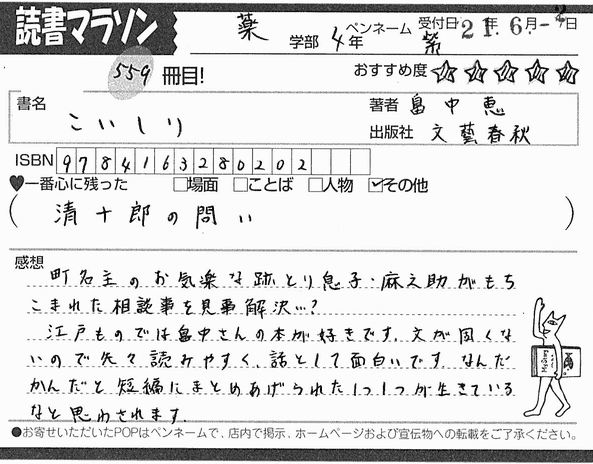 読書マラソン
薬 学部 4年 ペンネーム 紫 受付日 21年 6月-2日
559冊目! おすすめ度 ☆☆☆☆☆
書名 こいしり 著者 畠中恵
出版社 文藝春秋
ISBN 9784163280202
♥一番心に残った □場面 □ことば □人物 ☑その他
(清十郎の問い)
感想
町名主のお気楽な跡とり息子・麻之助がもち
こまれた相談事を見事解決…?
江戸ものでは畠中さんの本が好きです。文が固くな
いので先々読みやすく、話として面白いです。なんだ
かんだと短編にまとめあげられた1つ1つが生きている
なと思わされます。
●お寄せいただいたPOPはペンネームで、店内で掲示、ホームページおよび宣伝物への転載をご了承ください。